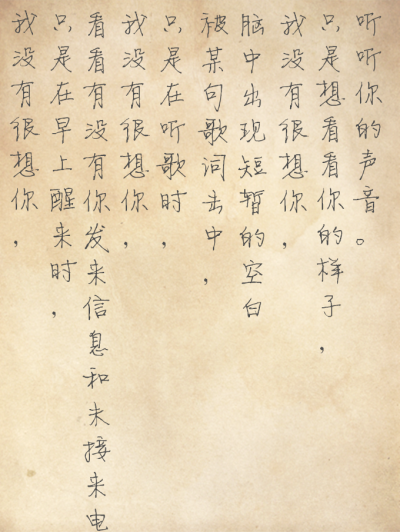 我没有很想你，
只是在早上醒来时，
看看有没有你发来信息和未接来电
我没有很想你，
只是在听歌时，
被某句歌词击中，
脑中出现短暂的空白
我没有很想你，
只是想看看你的样子，
听听你的声音。